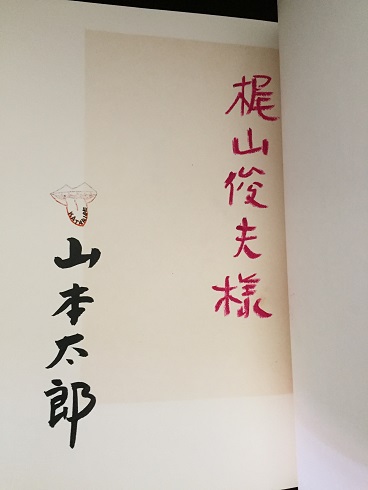 梶山俊夫様
山本太郎